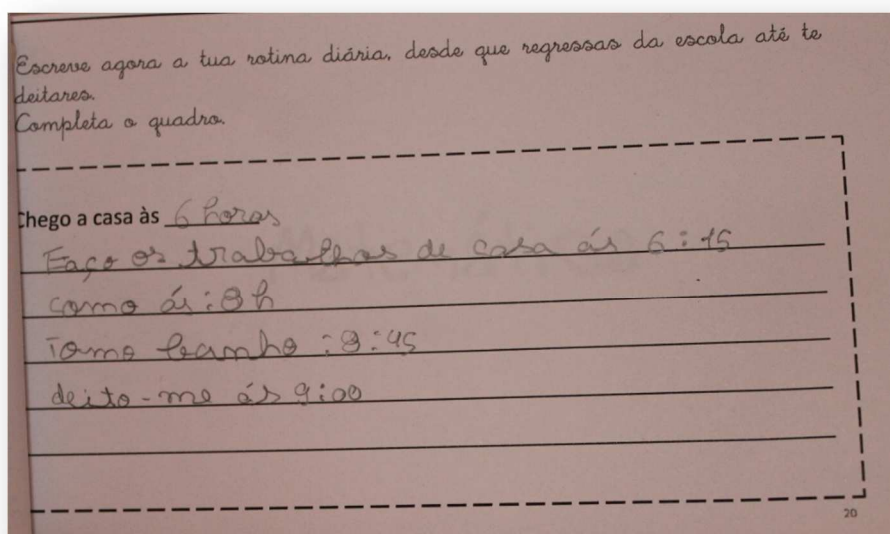 Escreve agora a tua rotina diária, desde que regressas da escola até te
deitares.
Completa o quadro.
Chego a casa às 6 horas
Faço os trabalhos de casa ás 6:15
como ás:8h
Tomo banho:8:45
deito-me ás 9:00
20